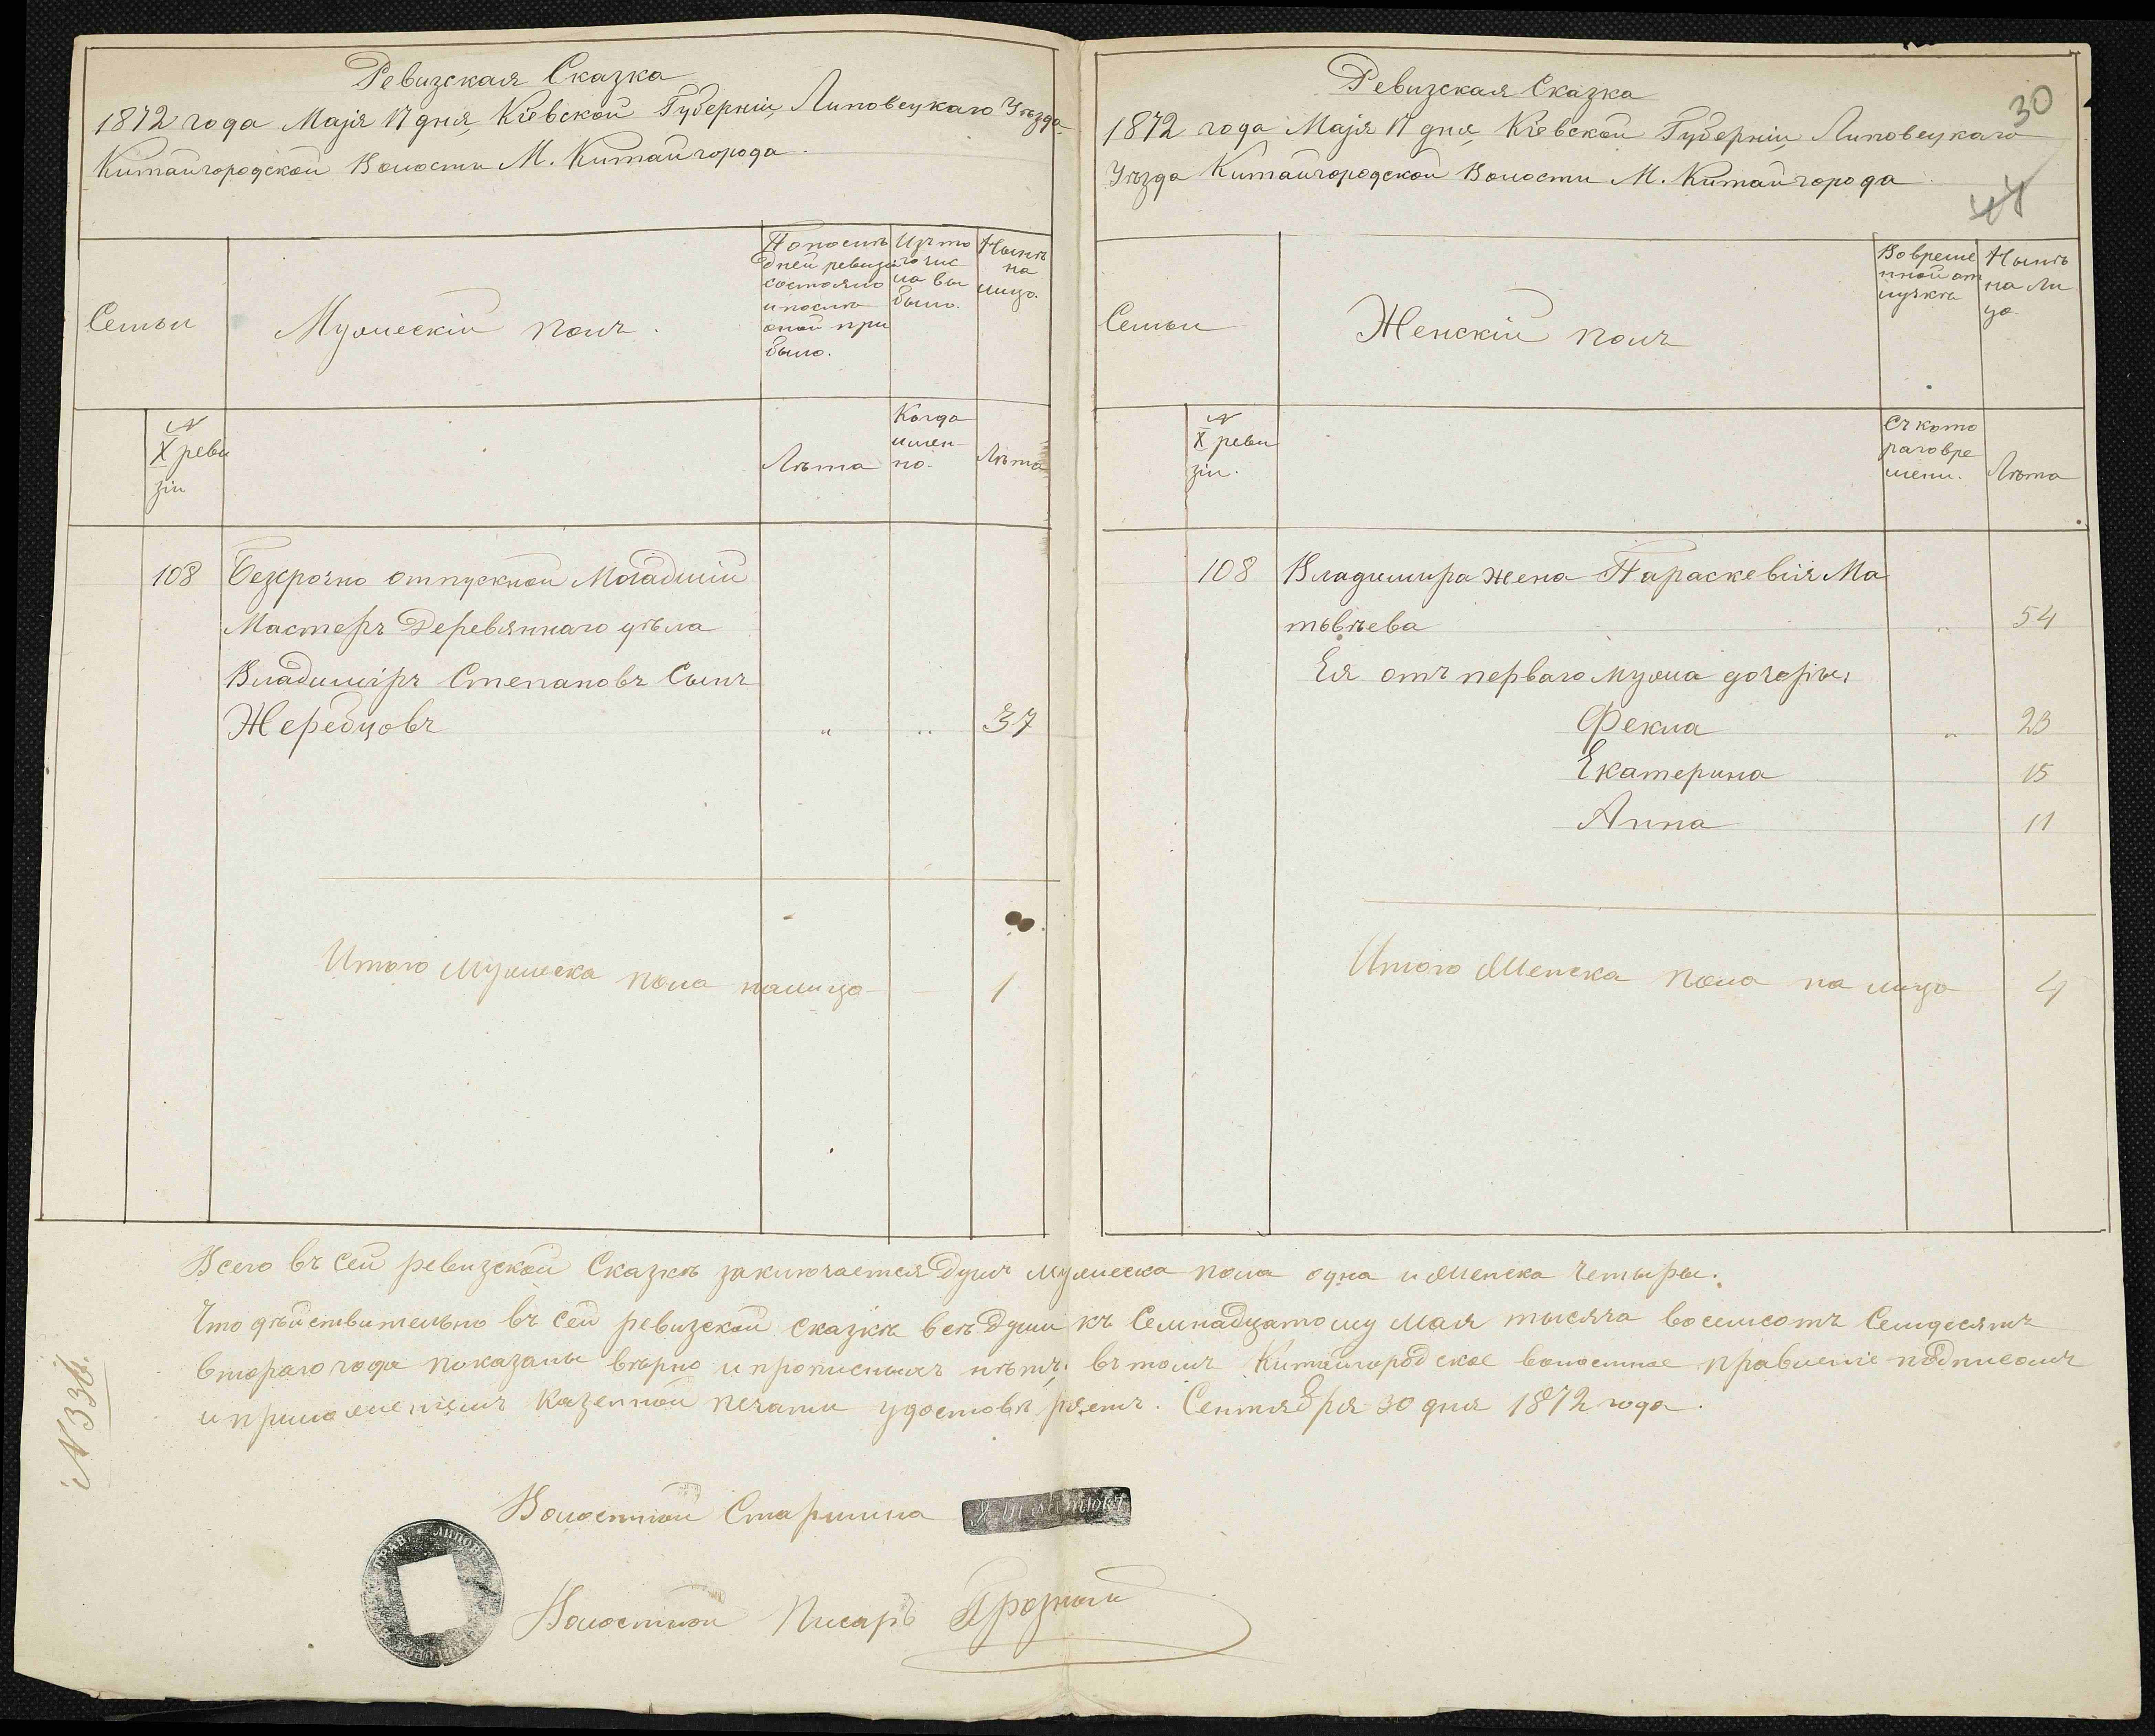 Ревизская Сказка
1872 года Маія 17 дня, Кіевской Губерніи, Липовецкаго Уѣзда,
Китайгородской Волости М. Китайгорода.
Семьи
Мужескій полъ.
По послѣ
дней ревизіи
состояло
и послѣ
оной при
было.
Изъ то
го чис
ла вы
было.
Нынѣ
на
лицо.
N
X реви
зіи
Лѣта
Когда
имен-
но.
Лѣта
108 Безсрочно отпускной Младшій
Мастеръ Деревяннаго цѣла
Владиміръ Степановъ Сынъ
Жеребцовъ " " 37
Итого мужеска пола налицо - 1
Ревизская Сказка
30
1872 года Маія 17 дня, Кіевской Губерніи, Липовецкаго
Уѣзда Китайгородской Волости М. Китайгорода.
Семьи
Женскій полъ
Во време
нной от
лучкѣ
Нынѣ
на ли
цо.
N
X реви
зіи.
Съ кото
раго вре
мени.
Лѣта
108 Владимира жена Параскевія Ма
твѣева " 54
Ея отъ перваго мужа дочери,
Фекла " 23
Екатерина 15
Анна 11
Итого Женска пола на лицо 4
Всего въ сей ревизской Сказкѣ заключается Душъ мужеска пола одна и Женска Четыры.
Что дѣйствительно въ сей ревизской сказкѣ всѣ Души къ Семнадцатому мая тысяча восемсотъ Семдесятъ
втораго года показаны вѣрно и прописныхъ нѣтъ, въ томъ Китайгородское волостное правленіе подписомъ
и приложеніемъ казенной печати удостовѣряетъ. Сентября 30 дня 1872 года.
N 336.
Волостной Старшина
Волостной Писарь Грозный